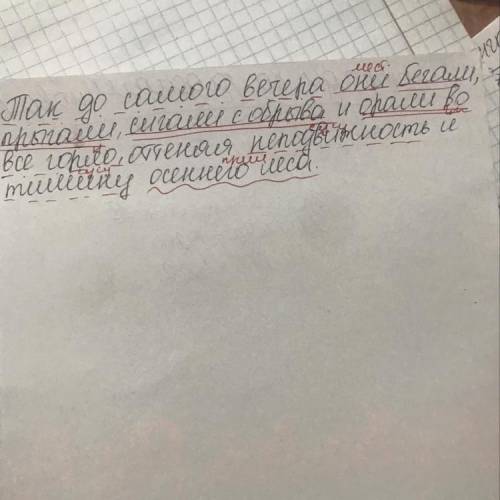 мест.
Так до самого вечера они бегали,
прыгали, сигали с обрыва и орали во
все горло, оттеняя неподвижность и
сущ прил
тишину осеннего леса.